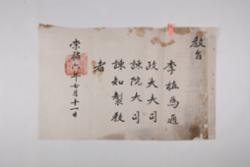 敎旨
李植爲通
政大夫司
諫院大司
諫知製敎
者
崇禎六年月十一日